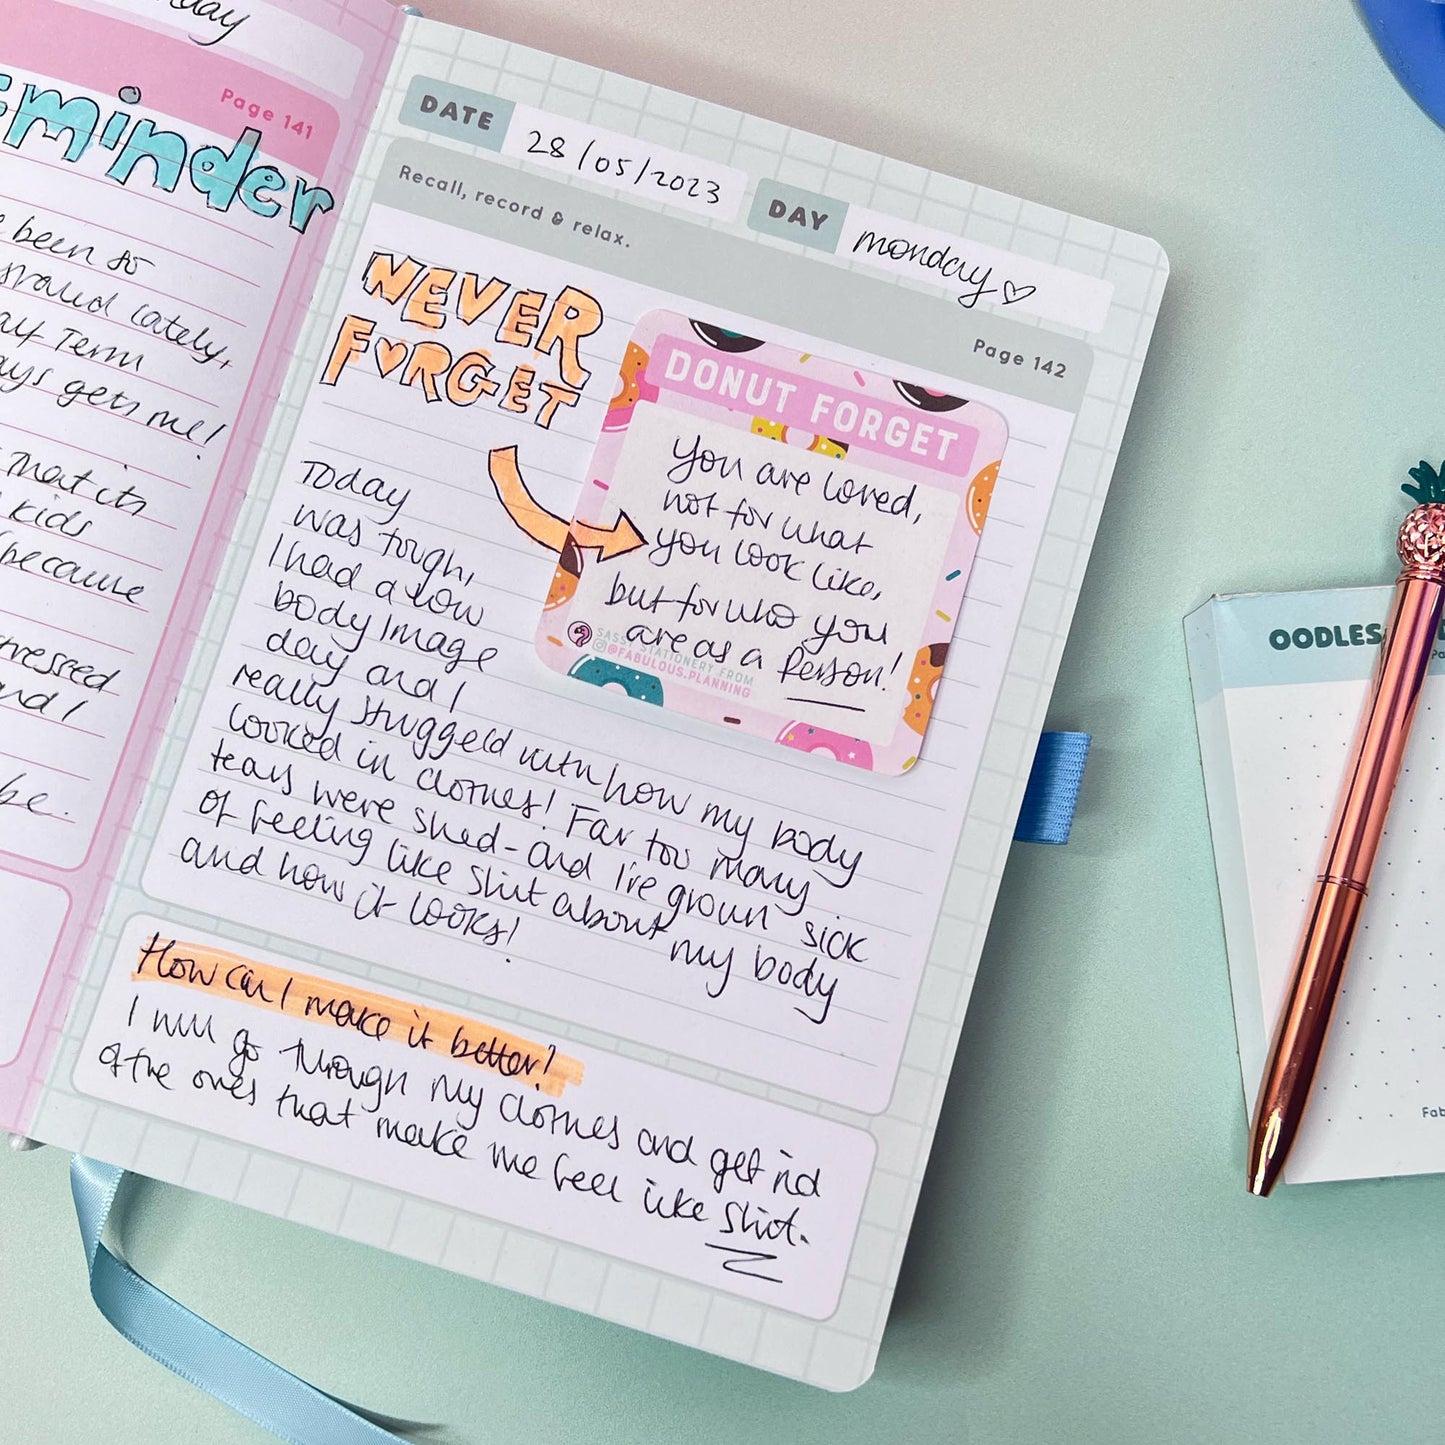 day
Page 141
minder
been so
lately,
Term
gets me!
that its
kids
because
stressed
and I
be.
DATE
28/05/2023
DAY
monday
Recall, record & relax.
Page 142
NEVER
FORGET
DONUT FORGET
You are loved,
not for what
you look like,
but for who you
are as a Person!
SASSY STATIONERY FROM
@FABULOUS.PLANNING
Today
was tough,
I had a low
body image
day and I
really struggeld with how my body
looked in clothes! Far too many
tears were shed - and I've grown sick
of feeling like shit about my body
and how it looks!
How can I make it better?
I will go through my clothes and get rid
of the ones that make me feel like shit.
OODLES
Fab